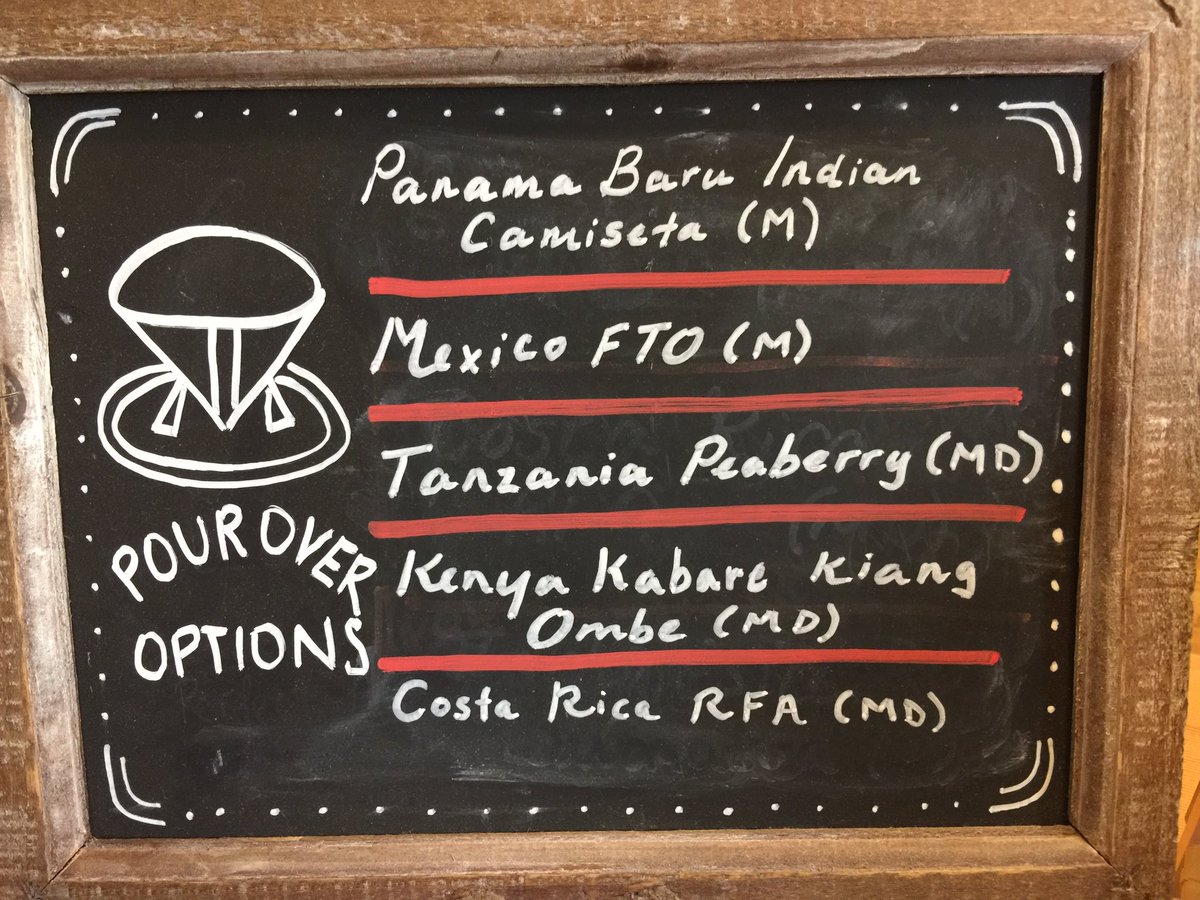 Panama Baru Indian
Camiseta (M)
Mexico FTO (M)
Tanzania Peaberry (MD)
Kenya Kabare Kiang
Ombe (MD)
Costa Rica RFA (MD)
POUR OVER
OPTIONS